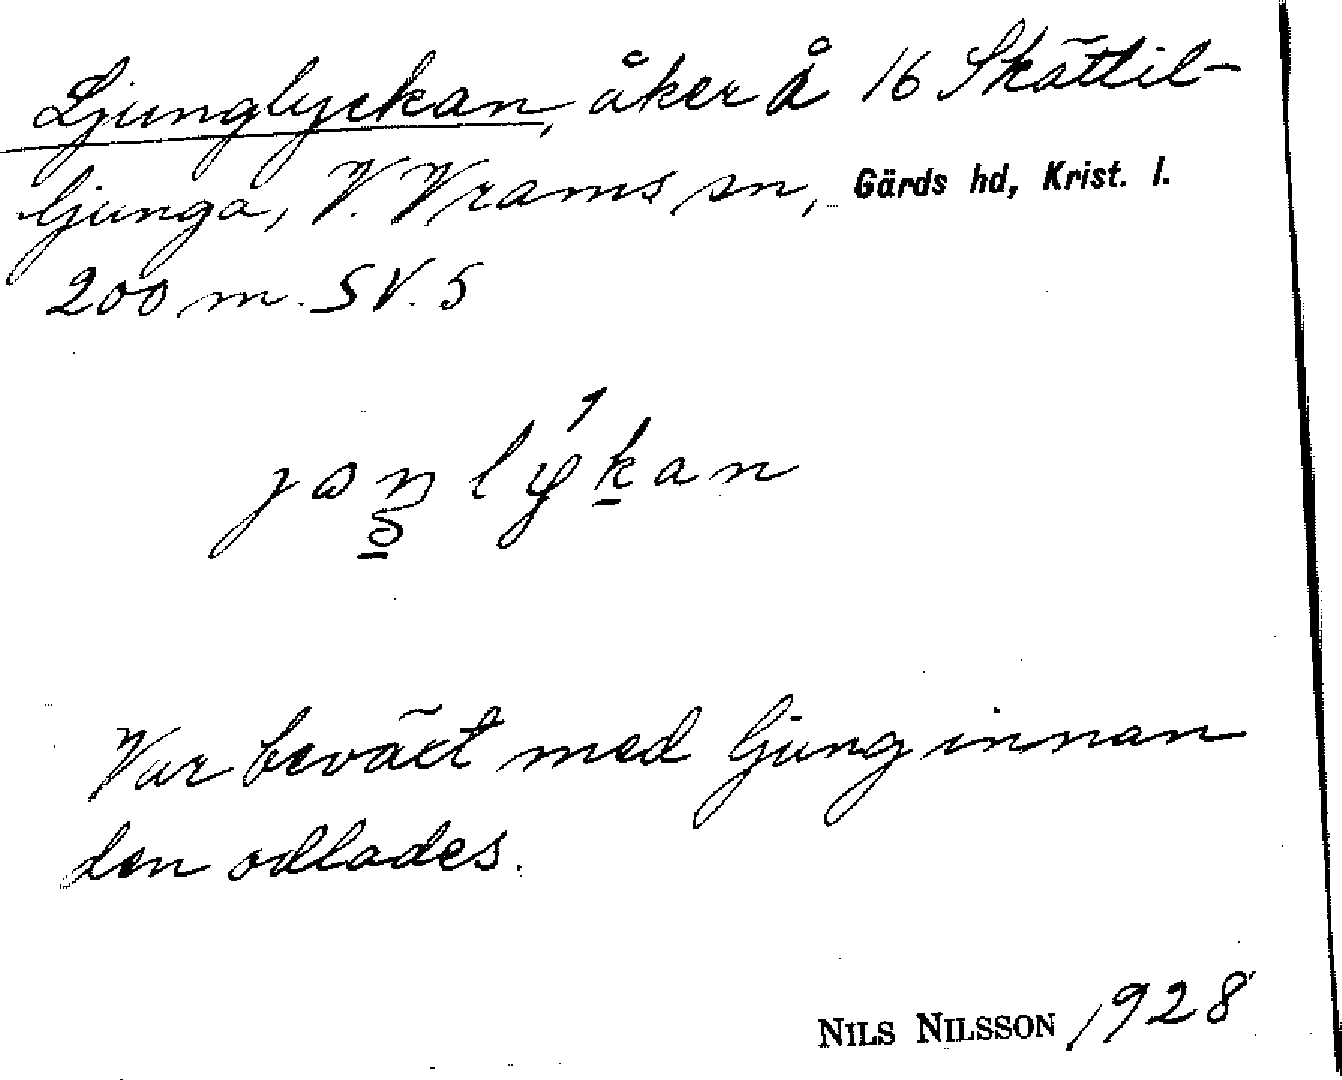 Ljunglyckan, åker å 16 Skättil-
ljunga, V. Vrams sn, Gärds hd, Krist. l.
200 m. SV. 5
Var beväxt med ljung innan
den odlades.
NILS NILSSON 1928